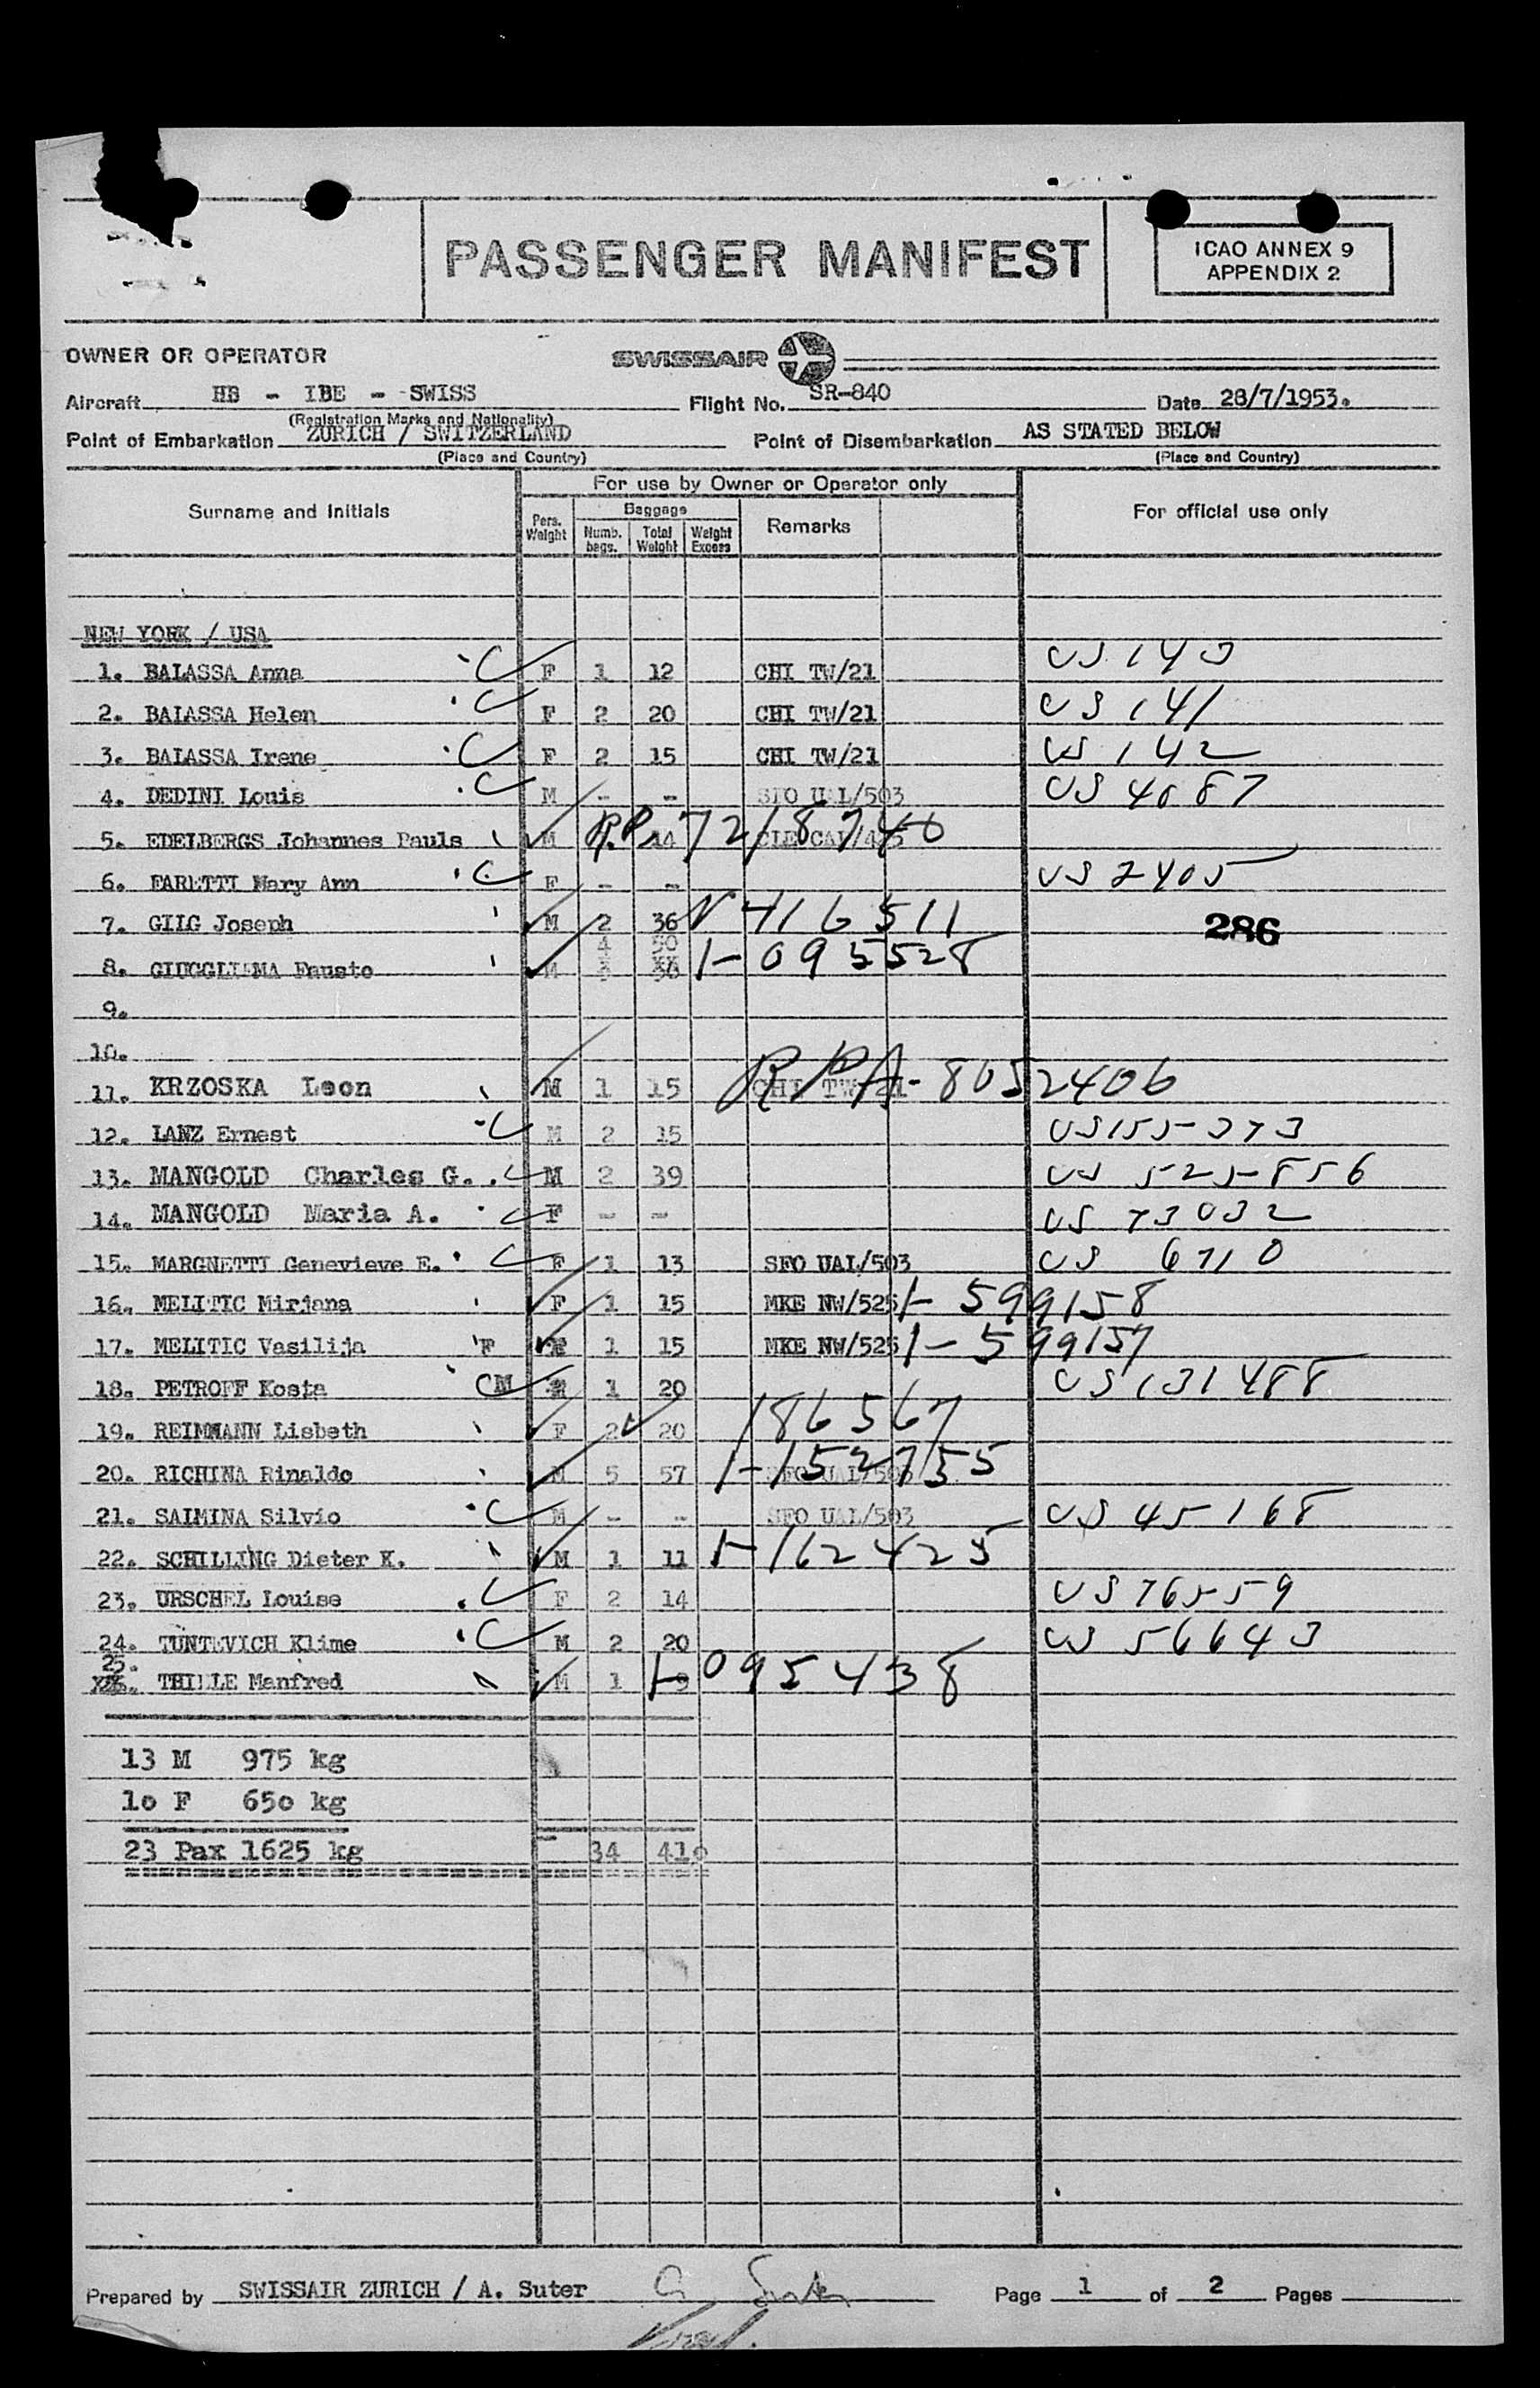 PASSENGER MANIFEST
ICAO ANNEX 9
APPENDIX 2
OWNER OR OPERATOR SWISSAIR
Aircraft HB - IBE - SWISS Flight No. SR-840 Date 28/7/1953.
(Registration Marks and Nationality)
Point of Embarkation ZURICH / SWITZERLAND Point of Disembarkation AS STATED BELOW
(Place and Country) (Place and Country)
For use by Owner or Operator only
Surname and Initials Pers. Weight Baggage Numb. bags. Total Weight Weight Excess Remarks For official use only
NEW YORK / USA
1. BALASSA Anna C F 1 12 CHI TW/21 US 143
2. BALASSA Helen C F 2 20 CHI TW/21 US 141
3. BALASSA Irene C F 2 15 CHI TW/21 US 142
4. DEDINI Louis C M - - SFO UAL/503 US 4087
5. EDELBERGS Johannes Pauls M R.P. 14 7218740
6. FARETTI Mary Ann C F - - US 2405
7. GIIG Joseph M 2 36 N 416511
286
4 50
8. Fausto M 1-095528
9.
10.
11. KRZOSKA Leon M 1 15 CHI TW/21 RPA-8052406
12. LANZ Ernest C M 2 15 US155-373
13. MANGOLD Charles G. C M 2 39 US 525-856
14. MANGOLD Maria A. C F - - US 73032
15. MARGNETTI Genevieve E. C F 1 13 SFO UAL/503 US 6710
16. MELITIC Mirjana F 1 15 MKE NW/525 1-599158
17. MELITIC Vasilija F 1 15 MKE NW/525 1-599157
18. PETROFF Kosta C M 1 20 US 131488
19. REIMMANN Lisbeth F 2 20 186567
20. RICHINA Rinaldo M 5 57 SFO UAL/503 1-152755
21. SAIMINA Silvio C M - - SFO UAL/503 US 45168
22. SCHILLING Dieter K. M 1 11 1-162425
23. URSCHEL Louise C F 2 14 US 76559
24. TUNTEVICH Klime C M 2 20 US 56643
25.
THILLE Manfred M 1 9 1-095438
13 M 975 kg
10 F 650 kg
23 Pax 1625 kg 34 410
Prepared by SWISSAIR ZURICH / A. Suter Page 1 of 2 Pages